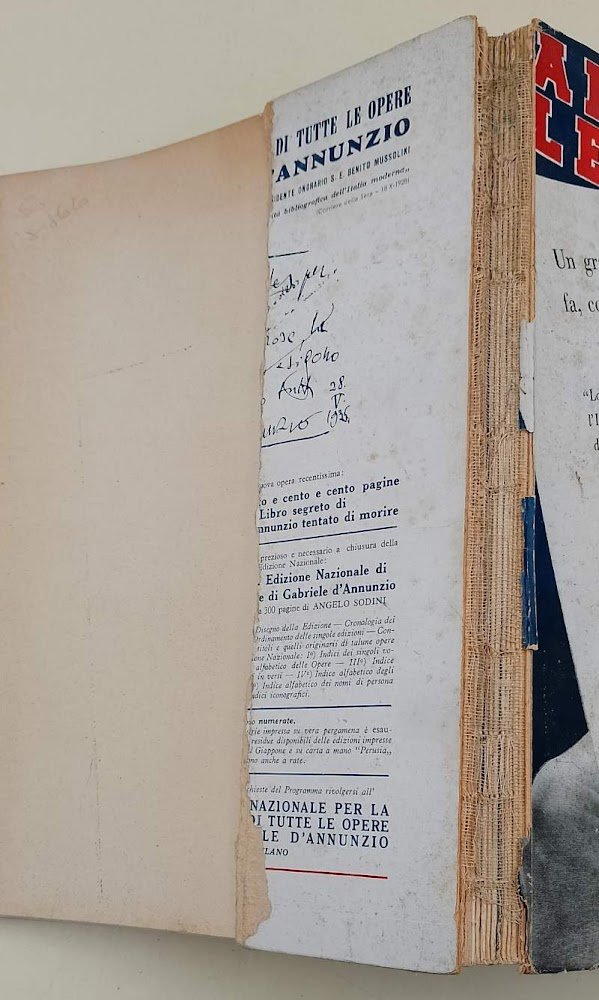 DI TUTTE LE OPERE
D'ANNUNZIO
IDENTE ONORARIO S. E. BENITO MUSSOLINI
bibliografica dell'Italia moderna„
(Corriere della Sera - 18-X-1928)
28.
V.
1936.
uova opera recentissima:
o e cento e cento pagine
Libro segreto di
nnunzio tentato di morire
prezioso e necessario a chiusura della
Edizione Nazionale:
Edizione Nazionale di
e di Gabriele d'Annunzio
a 300 pagine di ANGELO SODINI
Disegno della Edizione — Cronologia dei
Ordinamento delle singole edizioni — Con-
titoli e quelli originarii di talune opere
ne Nazionale: I°) Indici dei singoli vo-
alfabetico delle Opere — III°) Indice
i in versi — IV°) Indice alfabetico degli
°) Indice alfabetico dei nomi di persona
ndici iconografici.
no numerate.
rie impressa su vera pergamena è esau-
residue disponibili delle edizioni impresse
l Giappone e su carta a mano "Perusia„
no anche a rate.
chieste del Programma rivolgersi all'
NAZIONALE PER LA
DI TUTTE LE OPERE
LE D'ANNUNZIO
ILANO
A
LE
Un gr
fa, co
"Lo
l'I
d